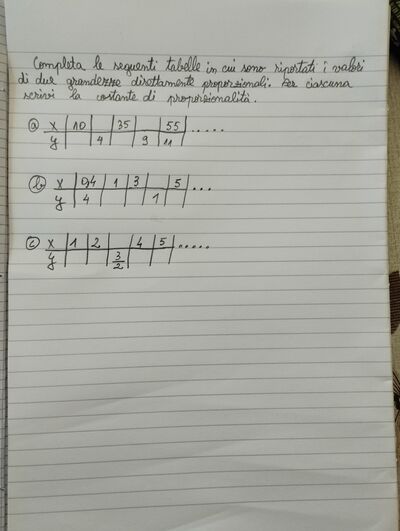 Completa le seguenti tabelle in cui sono riportati i valori
di due grandezze direttamente proporzionali. Per ciascuna
scrivi la costante di proporzionalità.
a) x | 10 | | 35 | | 55 | .....
y | | 4 | | 9 | 11 |
b) x | 0,4 | 1 | 3 | | 5 | ...
y | 4 | | | 1 | |
c) x | 1 | 2 | | 4 | 5 | .....
y | | | 3/2 | | |